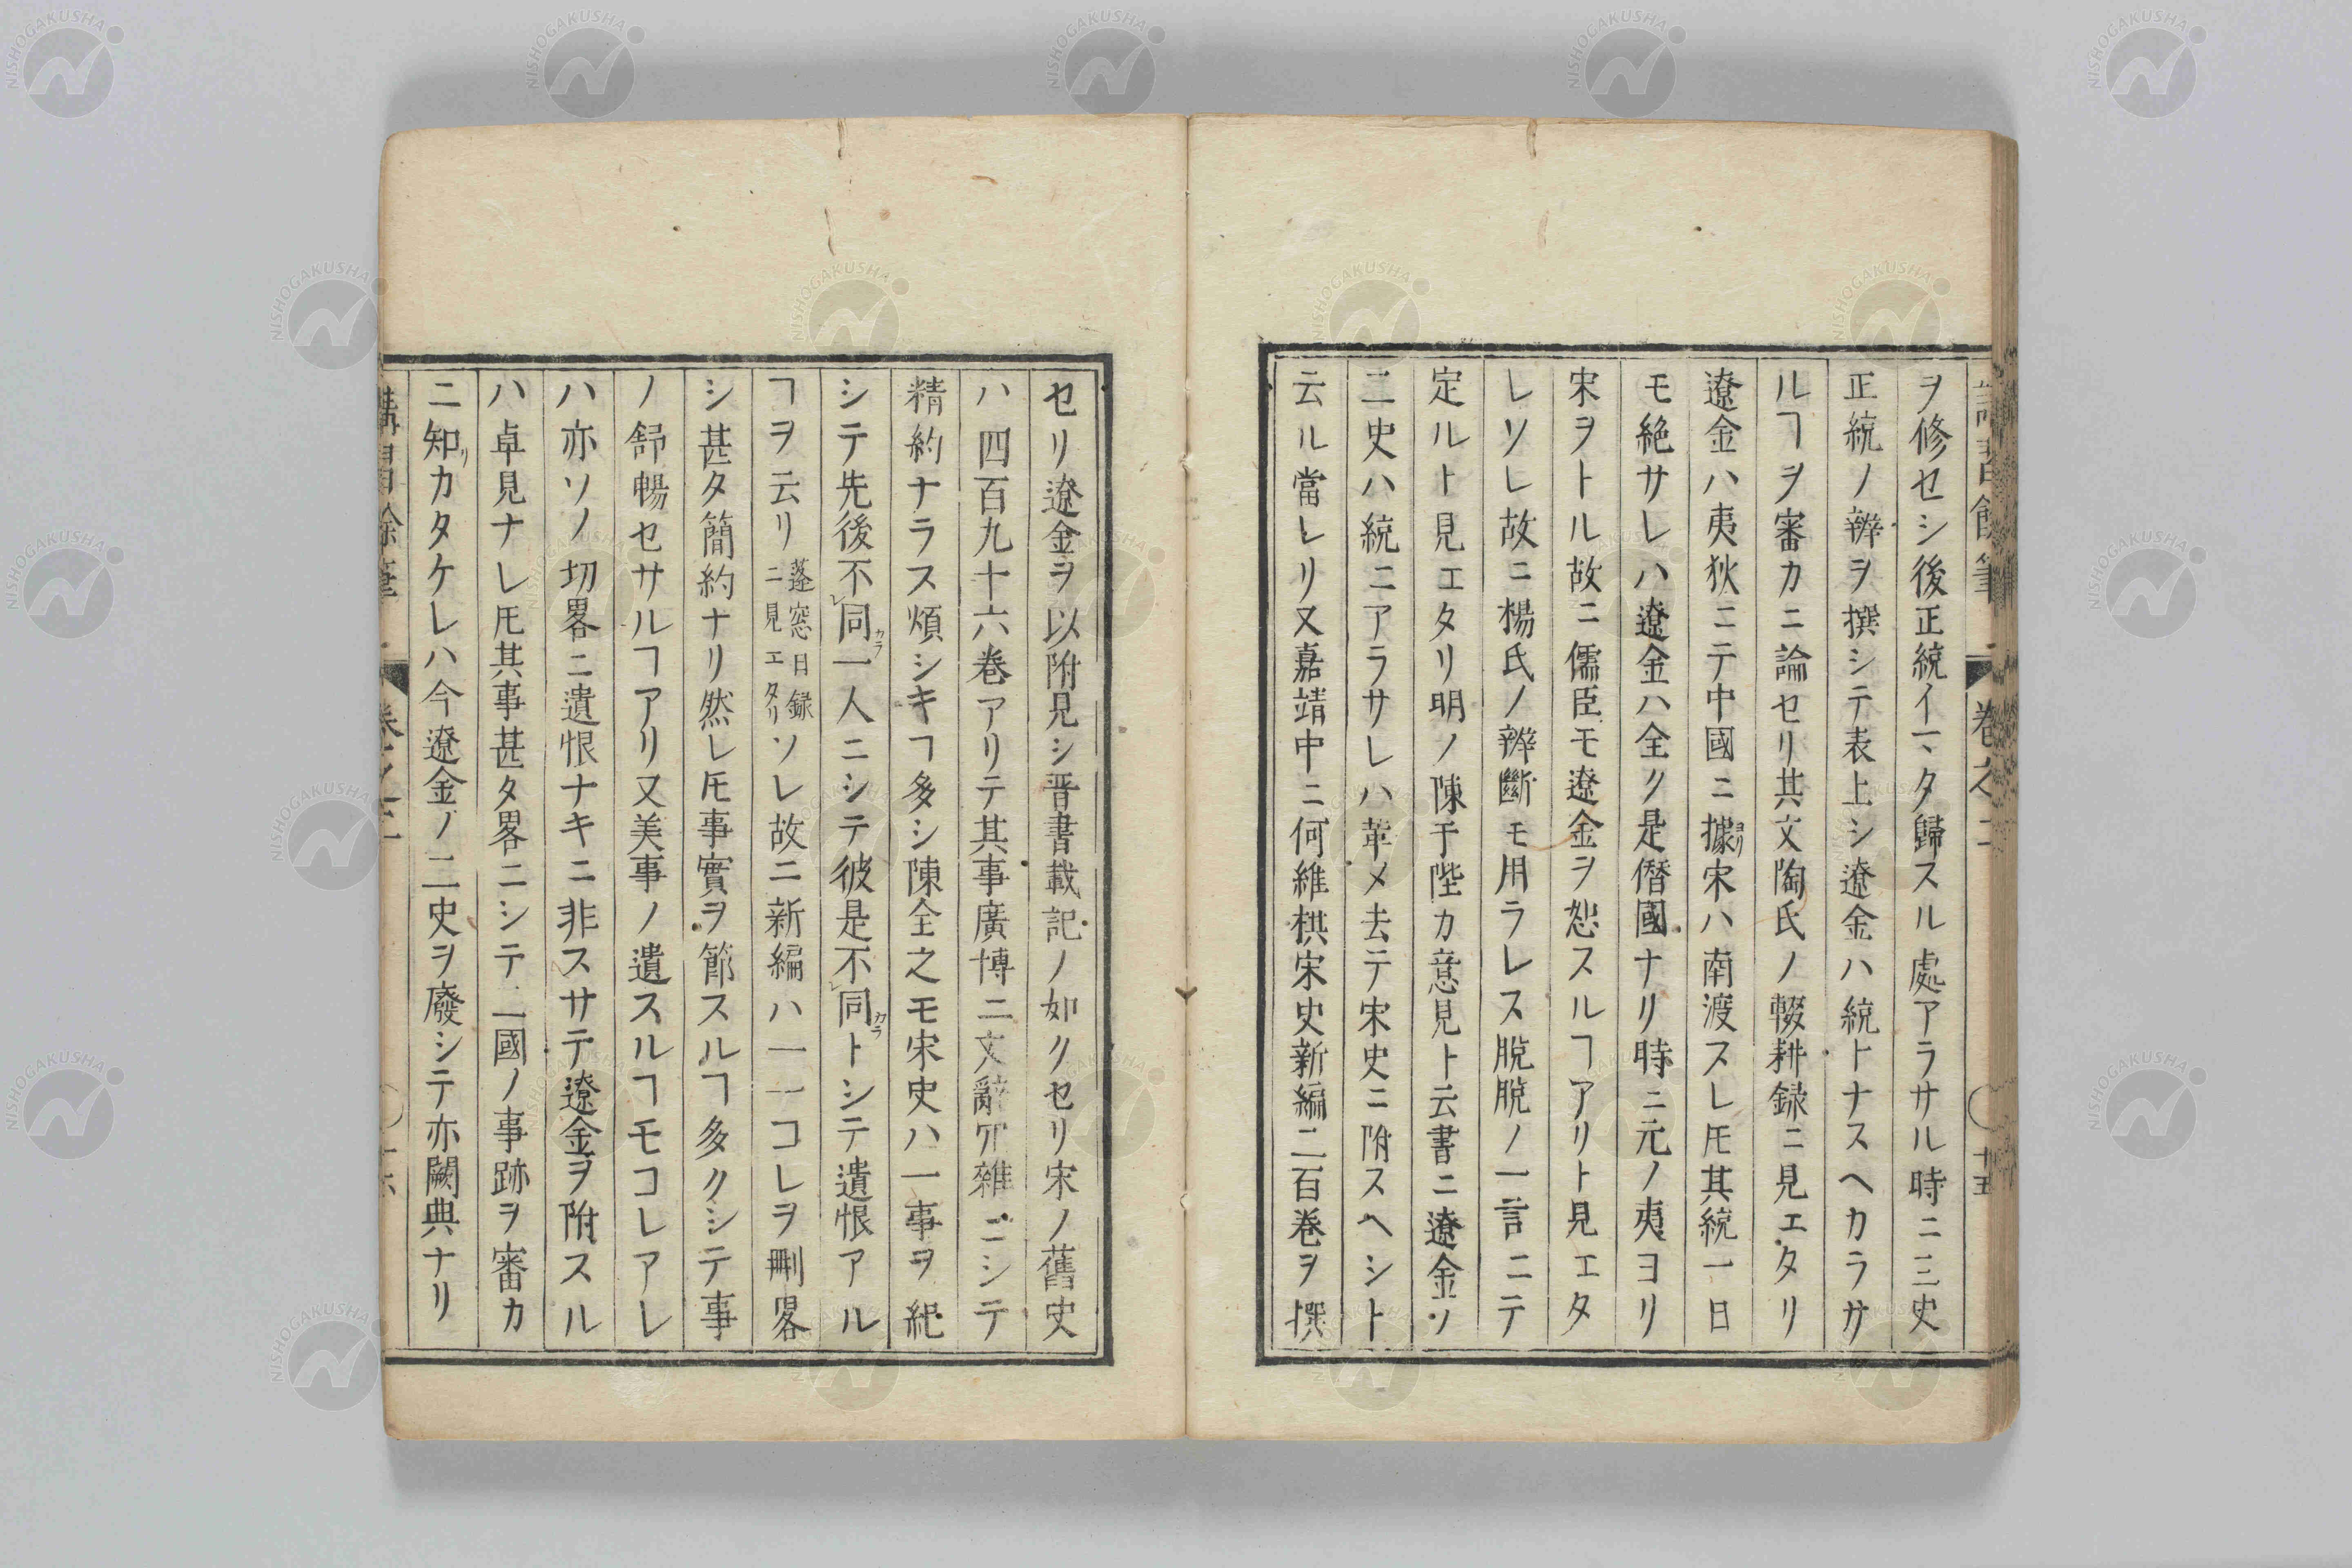 ヲ修セシ後正統イマタ歸スル處アラサル時ニ三史
正統ノ辨ヲ撰シテ表上シ遼金ハ統トナスヘカラサ
ルヿヲ審カニ論セリ其文陶氏ノ輟耕録ニ見エタリ
遼金ハ夷狄ニテ中國ニ據宋ハ南渡スレ𪜈其統一日
モ絶サレハ遼金ハ全ク是僭國ナリ時ニ元ノ夷ヨリ
宋ヲトル故ニ儒臣モ遼金ヲ恕スルヿアリト見エタ
レソレ故ニ楊氏ノ辨斷モ用ラレス脱脱ノ一言ニテ
定ルト見エタリ明ノ陳于陛カ意見ト云書ニ遼金ノ
二史ハ統ニアラサレハ革メ去テ宋史ニ附スヘシト
云ル當レリ又嘉靖中ニ何維棋宋史新編二百巻ヲ撰
セリ遼金ヲ以附見シ晋書載記ノ如クセリ宋ノ舊史
ハ四百九十六巻アリテ其事廣博ニ文辭冗雜ニシテ
精約ナラス煩シキヿ多シ陳全之モ宋史ハ一事ヲ紀
シテ先後不同一人ニシテ彼是不同トシテ遺恨アル
ヿヲ云リ蓬窓日録ニ見エタリソレ故ニ新編ハ一一コレヲ刪畧
シ甚タ簡約ナリ然レ𪜈事實ヲ節スルヿ多クシテ事
ノ舒暢セサルヿアリ又美事ノ遺スルヿモコレアレ
ハ亦ソノ切畧ニ遺恨ナキニ非スサテ遼金ヲ附スル
ハ卓見ナレ𪜈其事甚タ畧ニシテ二國ノ事跡ヲ審カ
ニ知リカタケレハ今遼金ノ二史ヲ廢シテ亦闕典ナリ
NISHOGAKUSHA